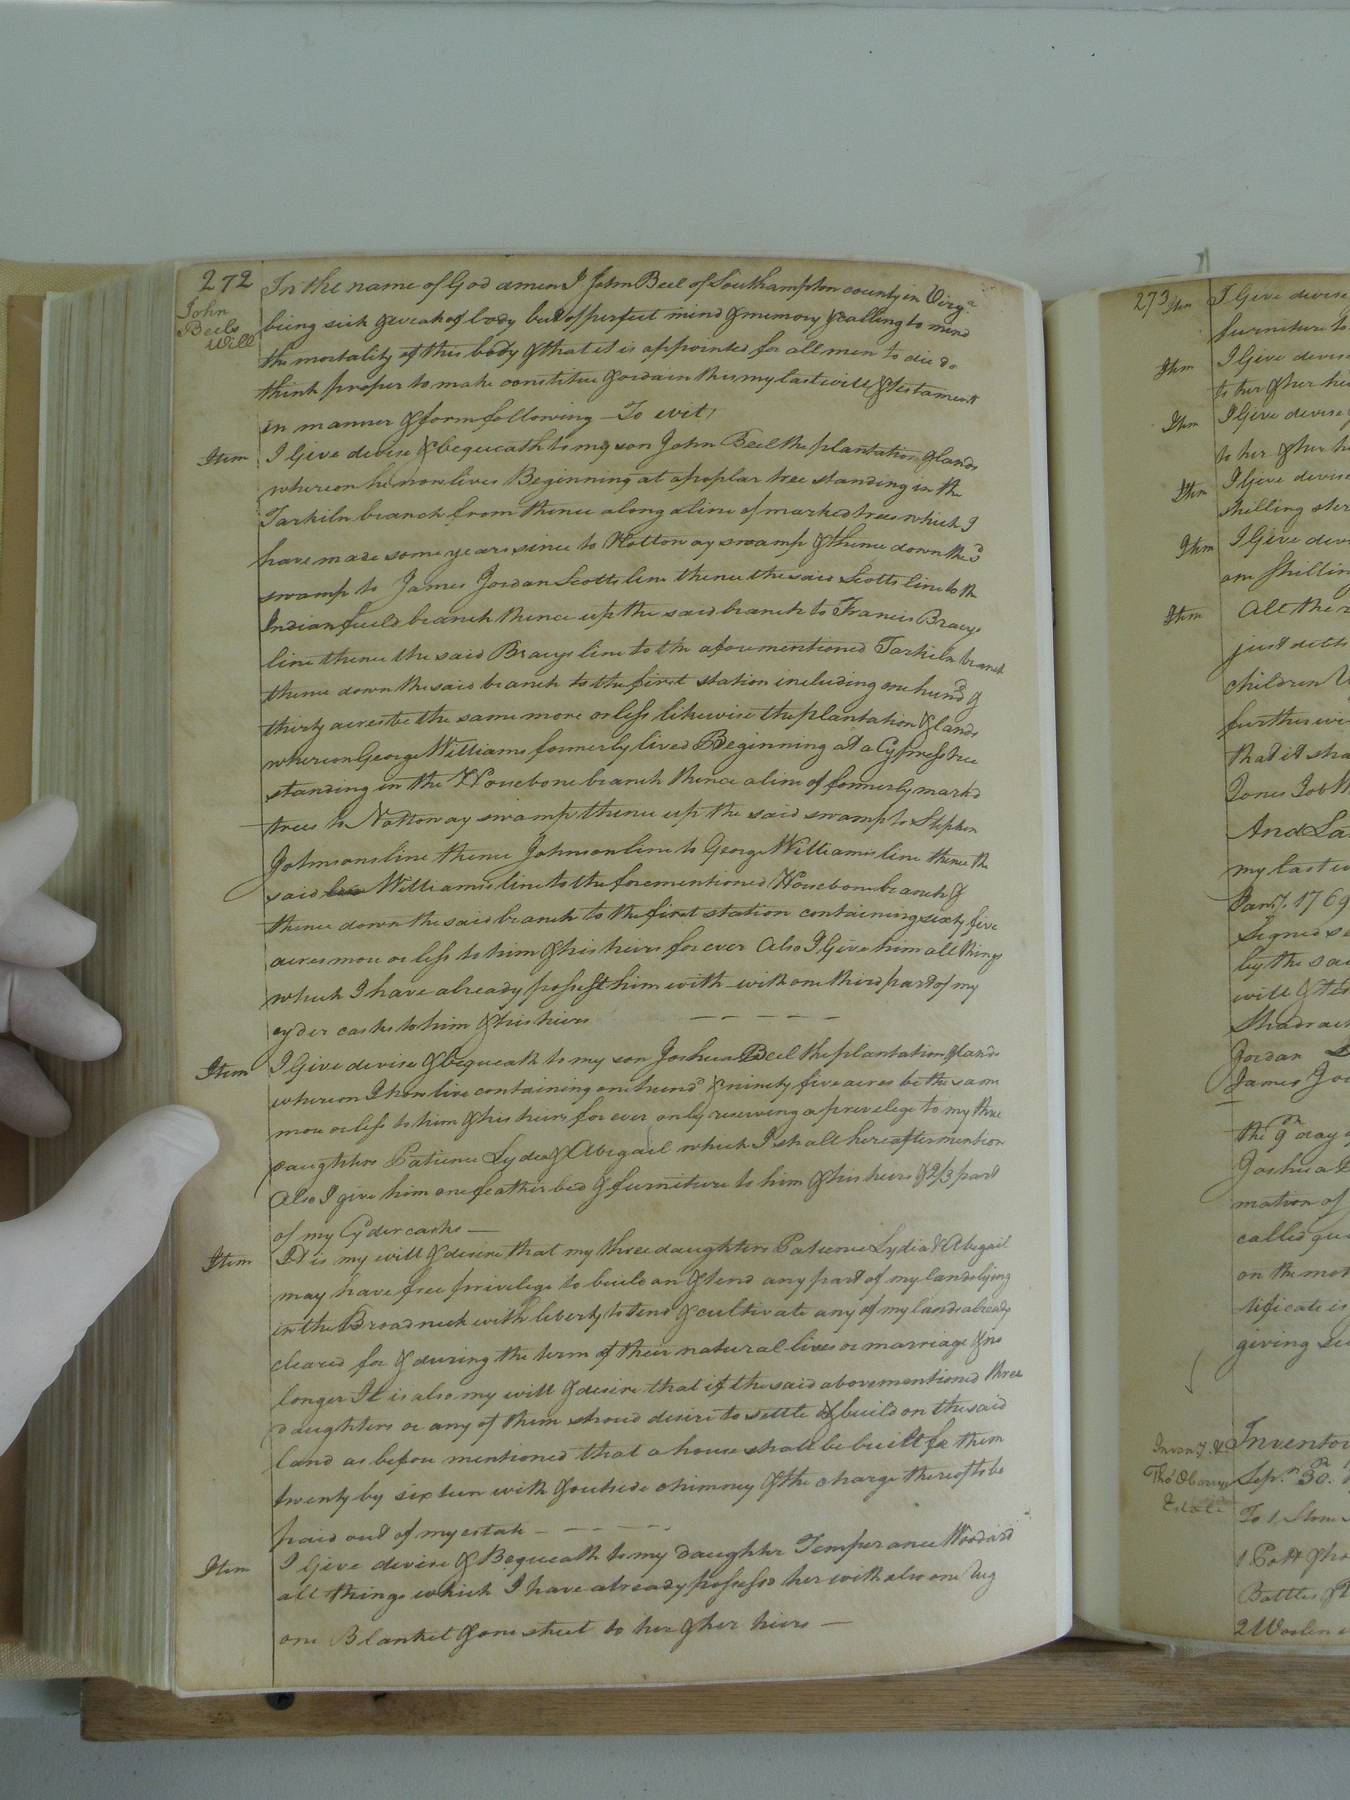 272
John
Beels
Will
In the name of God amen I John Beel of Southampton county in Virga
being sick & weak of body but of perfect mind & memory & calling to mind
the mortality of this body & that it is appointed for all men to die do
think proper to make constitue & ordain this my last will & testament
in manner & form following To wit
Item I Give devise & bequeath to my son John Beel the plantation & lands
whereon he now lives Beginning at a poplar tree standing in the
Tarkiln branch from thence along a line of marked trees which I
have made some years since to Nottoway swamp & thence down the sd
swamp to James Jordan Scotts line thence the said Scotts line to the
Indian field branch thence up the said branch to Francis Bracys
line thence the said Bracys line to the aforementioned Tarkiln branch
thence down the said branch to the first station including one hund &
thirty acres be the same more or less likewise the plantation & lands
whereon George Williams formerly lived Beginning at a Cypress tree
standing in the Horsebone branch thence a line of formerly markd
trees to Nottoway swamp thence up the said swamp to Stephen
Johnsons line thence Johnsons line to George Williams line thence the
said Williams line to the forementioned Horsebone branch &
thence down the said branch to the first station containing sixty five
acres more or less to him & his heirs for ever Also I Give him all things
which I have already possest him with with one third part of my
cyder casks to him & his hiers
Item I Give devise & bequeath to my son Joshua Beel the plantation & lands
whereon I now live containing one hund & ninety five acres be the same
more or less to him & his heirs for ever only reserving a previlege to my three
daughters Patience Lydia & Abigail which I shall hereafter mention
Also I give him one feather bed & furniture to him & his heirs & 2/3 part
of my Cyder casks
Item It is my will & desire that my three daughters Patience Lydia & Abigail
may have free privilege to build on & tend any part of my lands lying
in the Broad neck with liberty to tend & cultivate any of my lands already
cleared for & during the term of their natural lives or marriage & no
longer It is also my will & desire that if the said abovementioned three
daughters or any of them shoud desire to settle & build on the said
land as before mentioned that a house shall be built for them
twenty by sixteen with outside chimney & the charge thereof to be
paid out of my estate
Item I Give devise & Bequeath to my daughter Temperance Woodard
all things which I have already possessd her with also one Rug
one Blanket & one sheet to her & her hiers
273
Item I Give devise
furniture to
Item I Give devise
to her & her hei
Item I Give devise
to her & her h
Item I Give devise
shilling ster
Item I Give dev
one shillin
Item All the r
just debts
children
further wi
that it sha
Jones Job
And La
my last w
Jany. 1769
Signed se
by the sai
will & tes
Shadrac
Jordan
James Jor
the 9th day
Joshua B
mation of
called
on the mot
tificate is
giving se
Inventor
Estate
Sepr. 30
To 1 Stone
1 Pott
Bottles